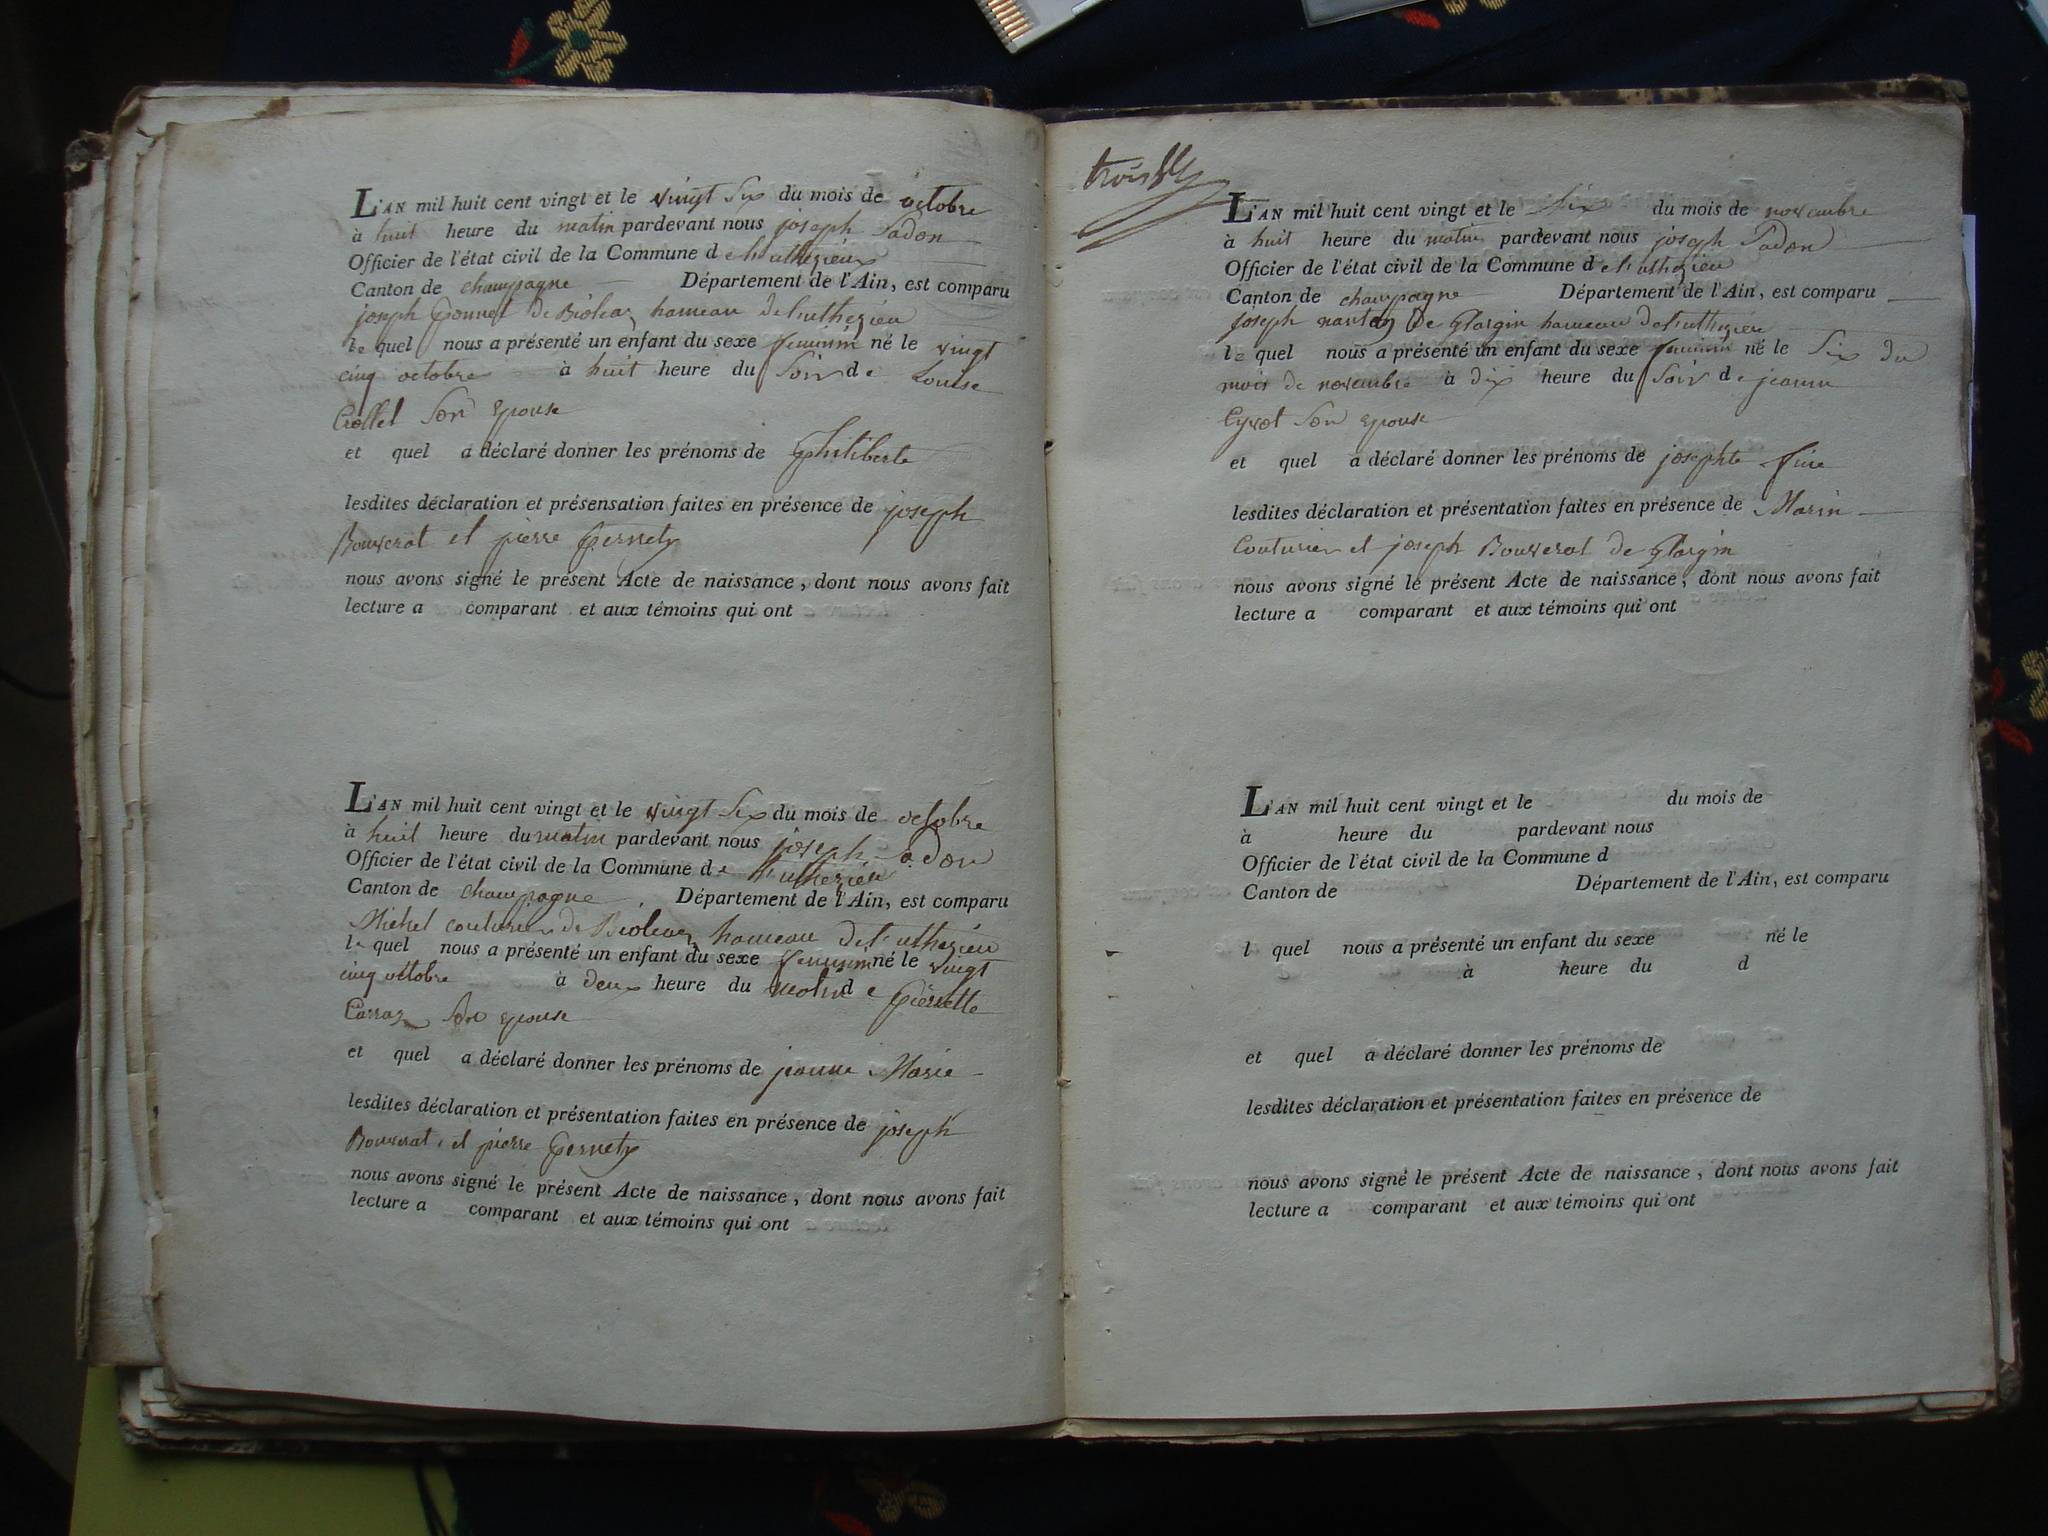 L'AN mil huit cent vingt et le vingt six du mois de octobre
à huit heure du matin pardevant nous joseph
Officier de l'état civil de la Commune d
Canton de champagne Département de l'Ain, est comparu
joseph de Bioleaz hameau
le quel nous a présenté un enfant du sexe feminin né le vingt
cinq octobre à huit heure du Soir de Louise
Crollet Son epouse
et quel a déclaré donner les prénoms de philiberte
lesdites déclaration et présensation faites en présence de joseph
Bouverat et pierre
nous avons signé le présent Acte de naissance, dont nous avons fait
lecture a comparant et aux témoins qui ont
L'AN mil huit cent vingt et le vingt Six du mois de octobre
à huit heure du matin pardevant nous joseph
Officier de l'état civil de la Commune de
Canton de champagne Département de l'Ain, est comparu
Michel couturier de Bioleaz hameau
le quel nous a présenté un enfant du sexe feminin né le vingt
cinq octobre à deux heure du matin de pierrette
Carraz Son epouse
et quel a déclaré donner les prénoms de jeanne Marie
lesdites déclaration et présentation faites en présence de joseph
Bouverat et pierre
nous avons signé le présent Acte de naissance, dont nous avons fait
lecture a comparant et aux témoins qui ont
trois
L'AN mil huit cent vingt et le Six du mois de novembre
à huit heure du matin pardevant nous joseph
Officier de l'état civil de la Commune d
Canton de champagne Département de l'Ain, est comparu
joseph de Glargin hameau
le quel nous a présenté un enfant du sexe feminin né le Six du
mois de novembre à dix heure du Soir de jeanne
Son epouse
et quel a déclaré donner les prénoms de josephte fine
lesdites déclaration et présentation faites en présence de Marin
Couturier et joseph Bouverat de Glargin
nous avons signé le présent Acte de naissance, dont nous avons fait
lecture a comparant et aux témoins qui ont
L'AN mil huit cent vingt et le du mois de
à heure du pardevant nous
Officier de l'état civil de la Commune d
Canton de Département de l'Ain, est comparu
l quel nous a présenté un enfant du sexe né le
à heure du d
et quel a déclaré donner les prénoms de
lesdites déclaration et présentation faites en présence de
nous avons signé le présent Acte de naissance, dont nous avons fait
lecture a comparant et aux témoins qui ont